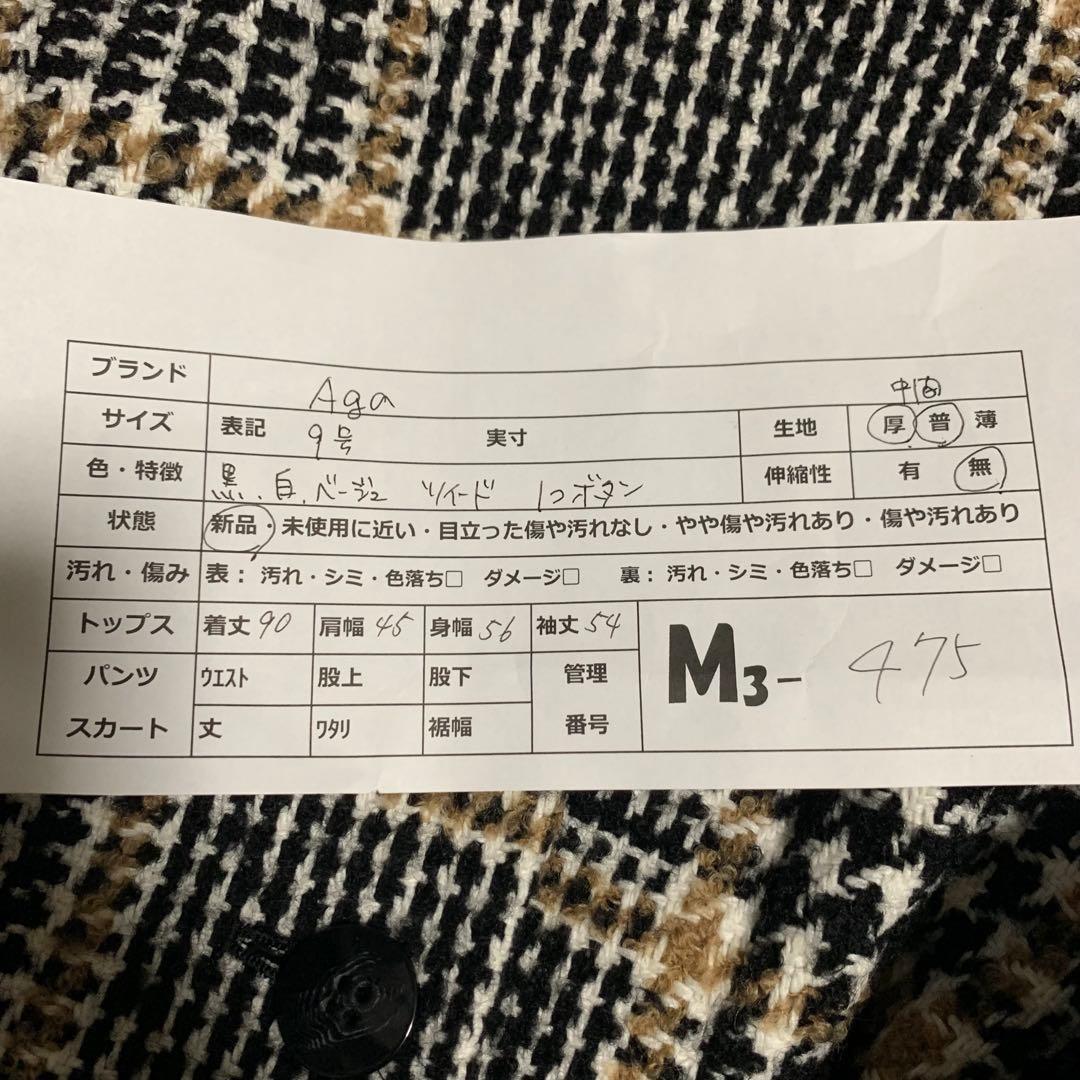 ブランド Aga
中間
サイズ 表記 9号 実寸 生地 厚 普 薄
色・特徴 黒、白、ベージュ ツイード 1コボタン 伸縮性 有 無
状態 新品・未使用に近い・目立った傷や汚れなし・やや傷や汚れあり・傷や汚れあり
汚れ・傷み 表：汚れ・シミ・色落ち□ ダメージ□ 裏：汚れ・シミ・色落ち□ ダメージ□
トップス 着丈 90 肩幅 45 身幅 56 袖丈 54
パンツ ウエスト 股上 股下 管理 M3- 475
スカート 丈 ワタリ 裾幅 番号